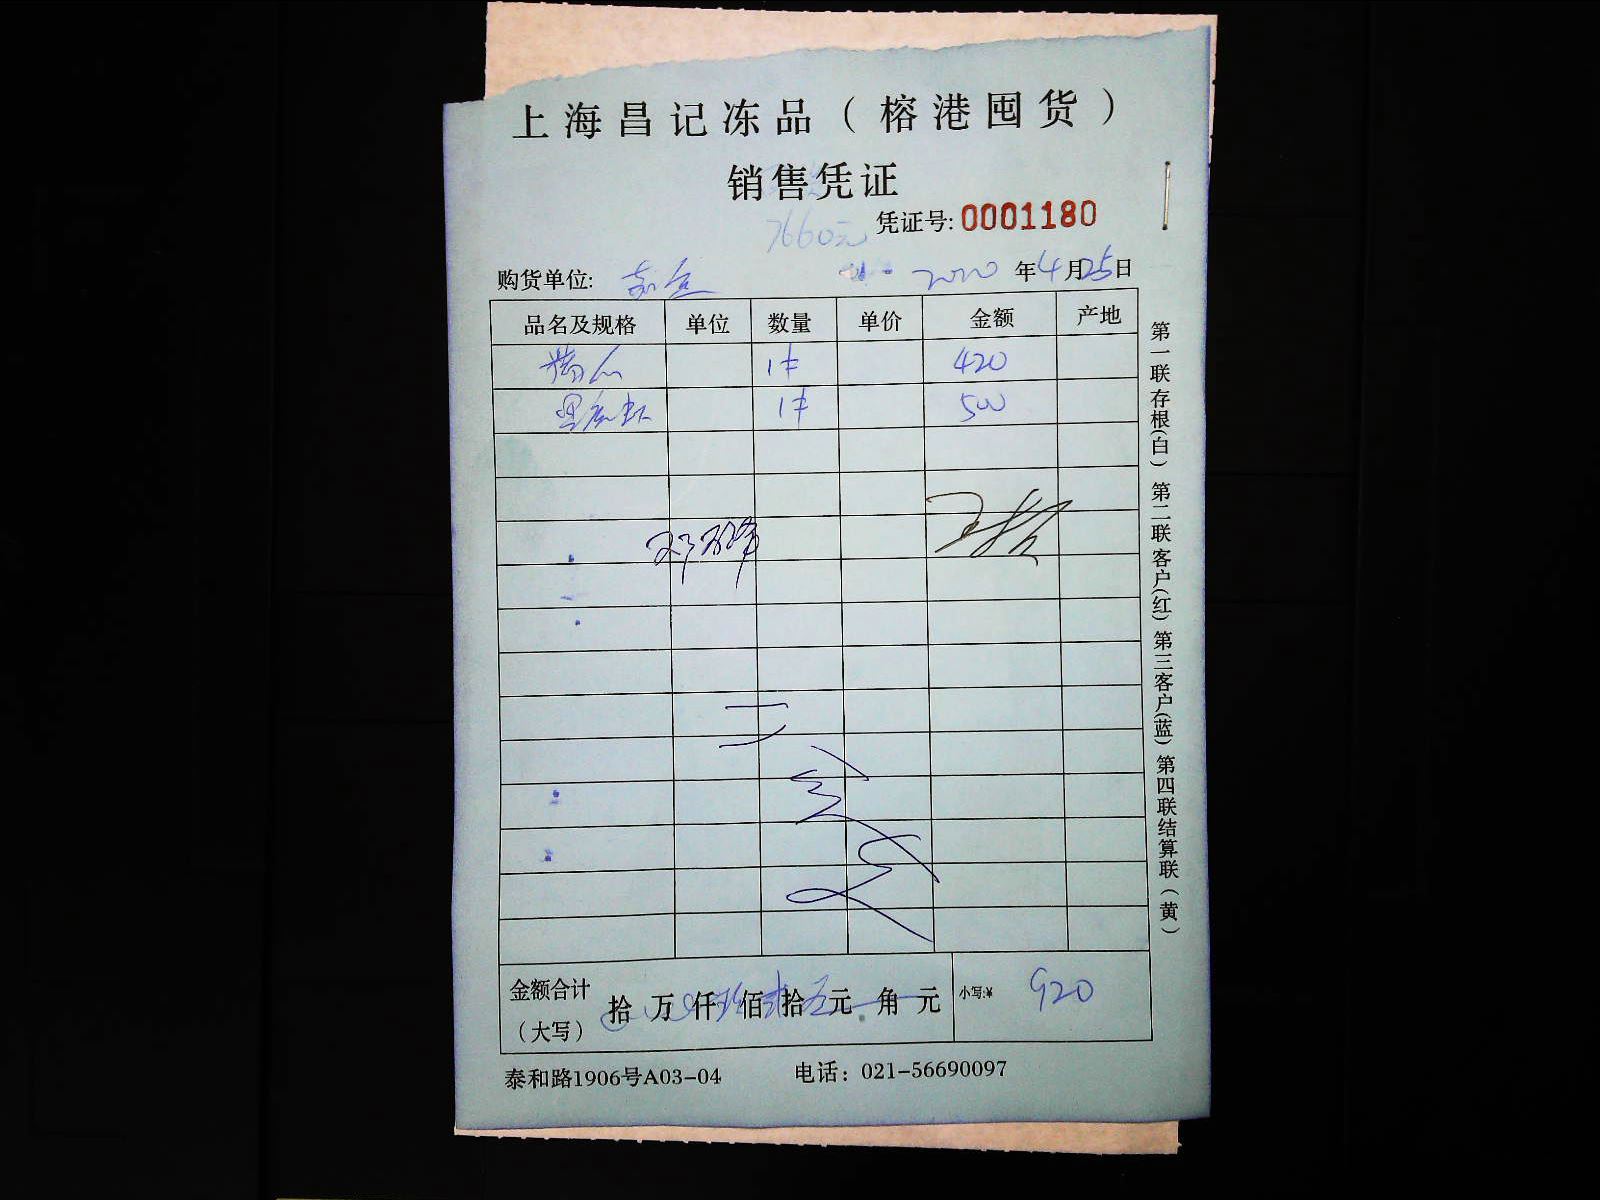 上海昌记冻品（榕港囤货）
销售凭证
7660元
凭证号: 0001180
购货单位: 2020年4月25日
品名及规格 单位 数量 单价 金额 产地
1件 420
1件 500
金额合计（大写） 拾 万 仟 玖佰 贰拾 元 角 元 小写:¥ 920
泰和路1906号A03-04 电话：021-56690097
第一联存根(白) 第二联客户(红) 第三客户(蓝) 第四联结算联(黄)